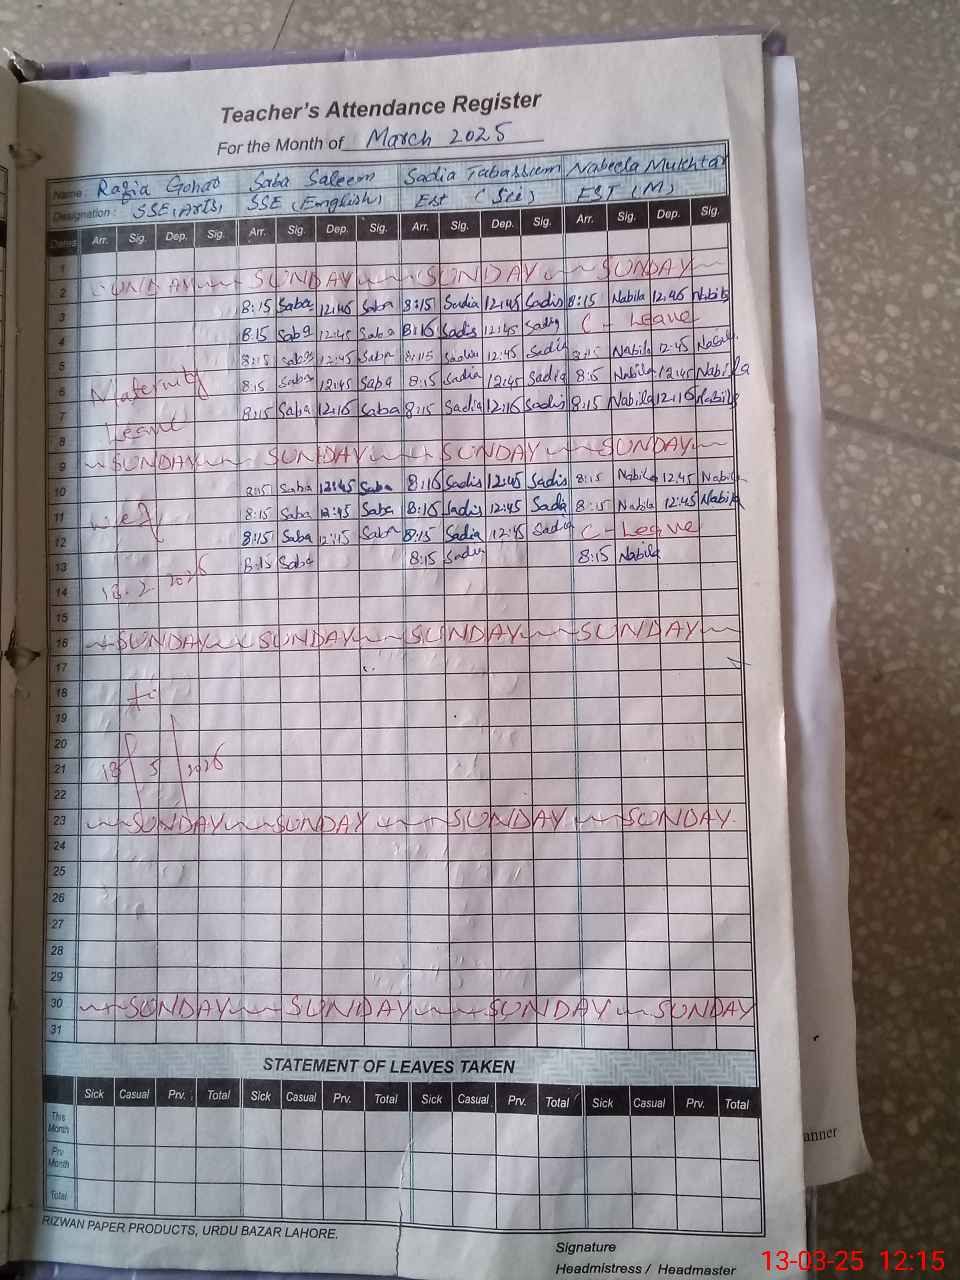 Teacher's Attendance Register
For the Month of March 2025
Name: Razia Gohar Saba Saleem Sadia Tabassum Nabeela Mukhtar
Designation: SSE(Arts) SSE (English) Est (Sci) EST (M)
Dates Arr. Sig. Dep. Sig. Arr. Sig. Dep. Sig. Arr. Sig. Dep. Sig. Arr. Sig. Dep. Sig.
1
2 SUNDAY SUNDAY SUNDAY SUNDAY
3 8:15 Saba 12:45 Saba 8:15 Sadia 12:45 Sadia 8:15 Nabila 12:45 Nabila
4 8:15 Saba 12:45 Saba 8:15 Sadia 12:45 Sadia C - Leave
5 8:15 Saba 12:45 Saba 8:15 Sadia 12:45 Sadia 8:15 Nabila 12:45 Nabila
6 Maternity 8:15 Saba 12:45 Saba 8:15 Sadia 12:45 Sadia 8:15 Nabila 12:45 Nabila
7 8:15 Saba 12:15 Saba 8:15 Sadia 12:15 Sadia 8:15 Nabila 12:15 Nabila
8 Leave
9 SUNDAY SUNDAY SUNDAY SUNDAY
10 8:15 Saba 12:45 Saba 8:15 Sadia 12:45 Sadia 8:15 Nabila 12:45 Nabila
11 w.e.f 8:15 Saba 12:45 Saba 8:15 Sadia 12:45 Sadia 8:15 Nabila 12:45 Nabila
12 8:15 Saba 12:45 Saba 8:15 Sadia 12:45 Sadia C - Leave
13 8:15 Saba 8:15 Sadia 8:15 Nabila
14 18.2.2025
15
16 SUNDAY SUNDAY SUNDAY SUNDAY
17
18 to
19
20
21 18 5 2025
22
23 SUNDAY SUNDAY SUNDAY SUNDAY
24
25
26
27
28
29
30 SUNDAY SUNDAY SUNDAY SUNDAY
31
STATEMENT OF LEAVES TAKEN
Sick Casual Prv. Total Sick Casual Prv. Total Sick Casual Prv. Total Sick Casual Prv. Total
This Month
Prv Month
Total
RIZWAN PAPER PRODUCTS, URDU BAZAR LAHORE.
Signature
Headmistress / Headmaster
anner
13-03-25 12:15